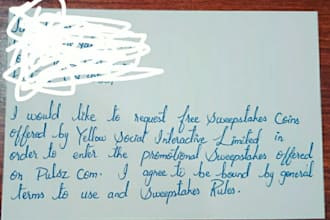 I would like to request free Sweepstakes Coins
offered by Yellow Social Interactive Limited in
order to enter the promotional Sweepstakes offered
on Pulsz Com. I agree to be bound by general
terms to use and Sweepstakes Rules.